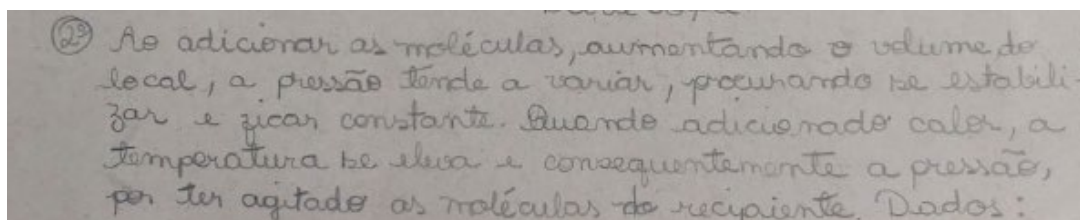 2º Ao adicionar as moléculas, aumentando o volume do
local, a pressão tende a variar, procurando se estabili-
zar e ficar constante. Quando adicionado calor, a
temperatura se eleva e consequentemente a pressão,
por ter agitado as moléculas do recipiente. Dados: